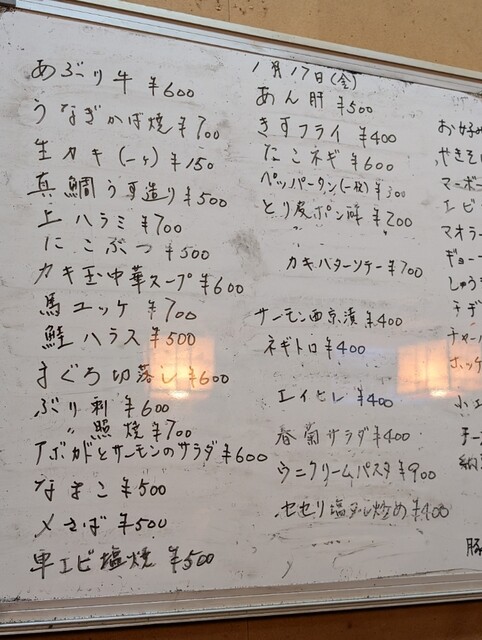 あぶり牛 ¥600
うなぎかば焼 ¥700
生カキ(一ヶ) ¥150
真鯛うす造り ¥500
上ハラミ ¥700
にこぶつ ¥500
カキ玉中華スープ ¥600
馬ユッケ ¥700
鮭ハラス ¥500
まぐろ切落し ¥600
ぶり刺 ¥600
〃 照焼 ¥700
アボカドとサーモンのサラダ ¥600
なまこ ¥500
〆さば ¥500
車エビ塩焼 ¥500
1月17日(金)
あん肝 ¥500
きすフライ ¥400
たこネギ ¥600
ペッパータン(一枚) ¥300
とり皮ポン酢 ¥200
カキバターソテー ¥700
サーモン西京漬 ¥400
ネギトロ ¥400
エイヒレ ¥400
春菊サラダ ¥400
ウニクリームパスタ ¥900
セセリ塩ダレ炒め ¥400
お好み
やきそ
マーボー
エビ
マオラー
ギョー
しゅう
チヂ
チャー
ホッケ
小エ
チー
納豆
豚